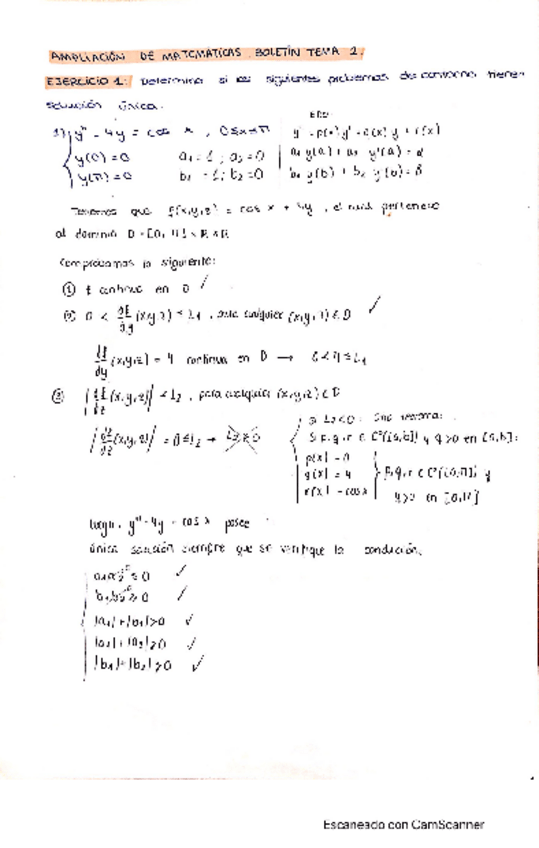 AMPLIACIÓN DE MATEMÁTICAS BOLETÍN TEMA 2.
EJERCICIO 1: Determina si los siguientes problemas de contorno tienen
solución única.
EDO:
1) y'' - 4y = cos x, 0≤x≤π
y'' = p(x) y' + q(x) y + r(x)
y(0) = 0 a₁ = 1 ; a₂ = 0
a₁ y(a) + a₂ y'(a) = α
y(π) = 0 b₁ = 1 ; b₂ = 0
b₁ y(b) + b₂ y'(b) = β
Tenemos que f(x,y,z) = cos x + 4y, el cual pertenece
al dominio D = [0, π] × R × R
Comprobamos lo siguiente:
① f continua en D ✓
② 0 < ∂f/∂y (x,y,z) ≤ L₁, para cualquier (x,y,z) ∈ D ✓
∂f/∂y (x,y,z) = 4 continua en D → 0 < 4 ≤ L₁
③ |∂f/∂z (x,y,z)| ≤ L₂, para cualquier (x,y,z) ∈ D
|∂f/∂z (x,y,z)| = 0 ≤ L₂ →
Si p, q, r ∈ C⁰([a,b]) y q>0 en [a,b]:
p(x) = 0
q(x) = 4
p, q, r ∈ C⁰([0,π]) y
r(x) = cos x
q>0 en [0,π]
luego, y'' - 4y = cos x posee
única solución siempre que se verifique la condición:
a₁a₂ ≤ 0 ✓
b₁b₂ ≥ 0 ✓
|a₁| + |b₁| > 0 ✓
|a₁| + |a₂| > 0 ✓
|b₁| + |b₂| > 0 ✓
Escaneado con CamScanner